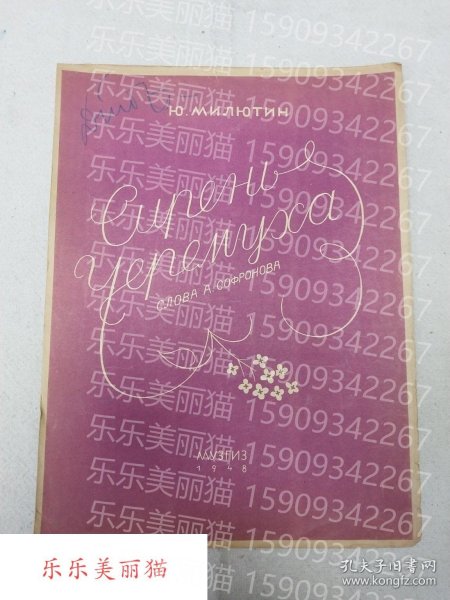 Ю. МИЛЮТИН
Сирень-
черемуха
СЛОВА А. СОФРОНОВА
МУЗГИЗ
1948
乐乐美丽猫 15909342267
乐乐美丽猫 15909342267
乐乐美丽猫 15909342267
乐乐美丽猫 15909342267
乐乐美丽猫 15909342267
乐乐美丽猫 15909342267
乐乐美丽猫 15909342267
乐乐美丽猫 15909342267
乐乐美丽猫
孔夫子旧书网
www.kongfz.com